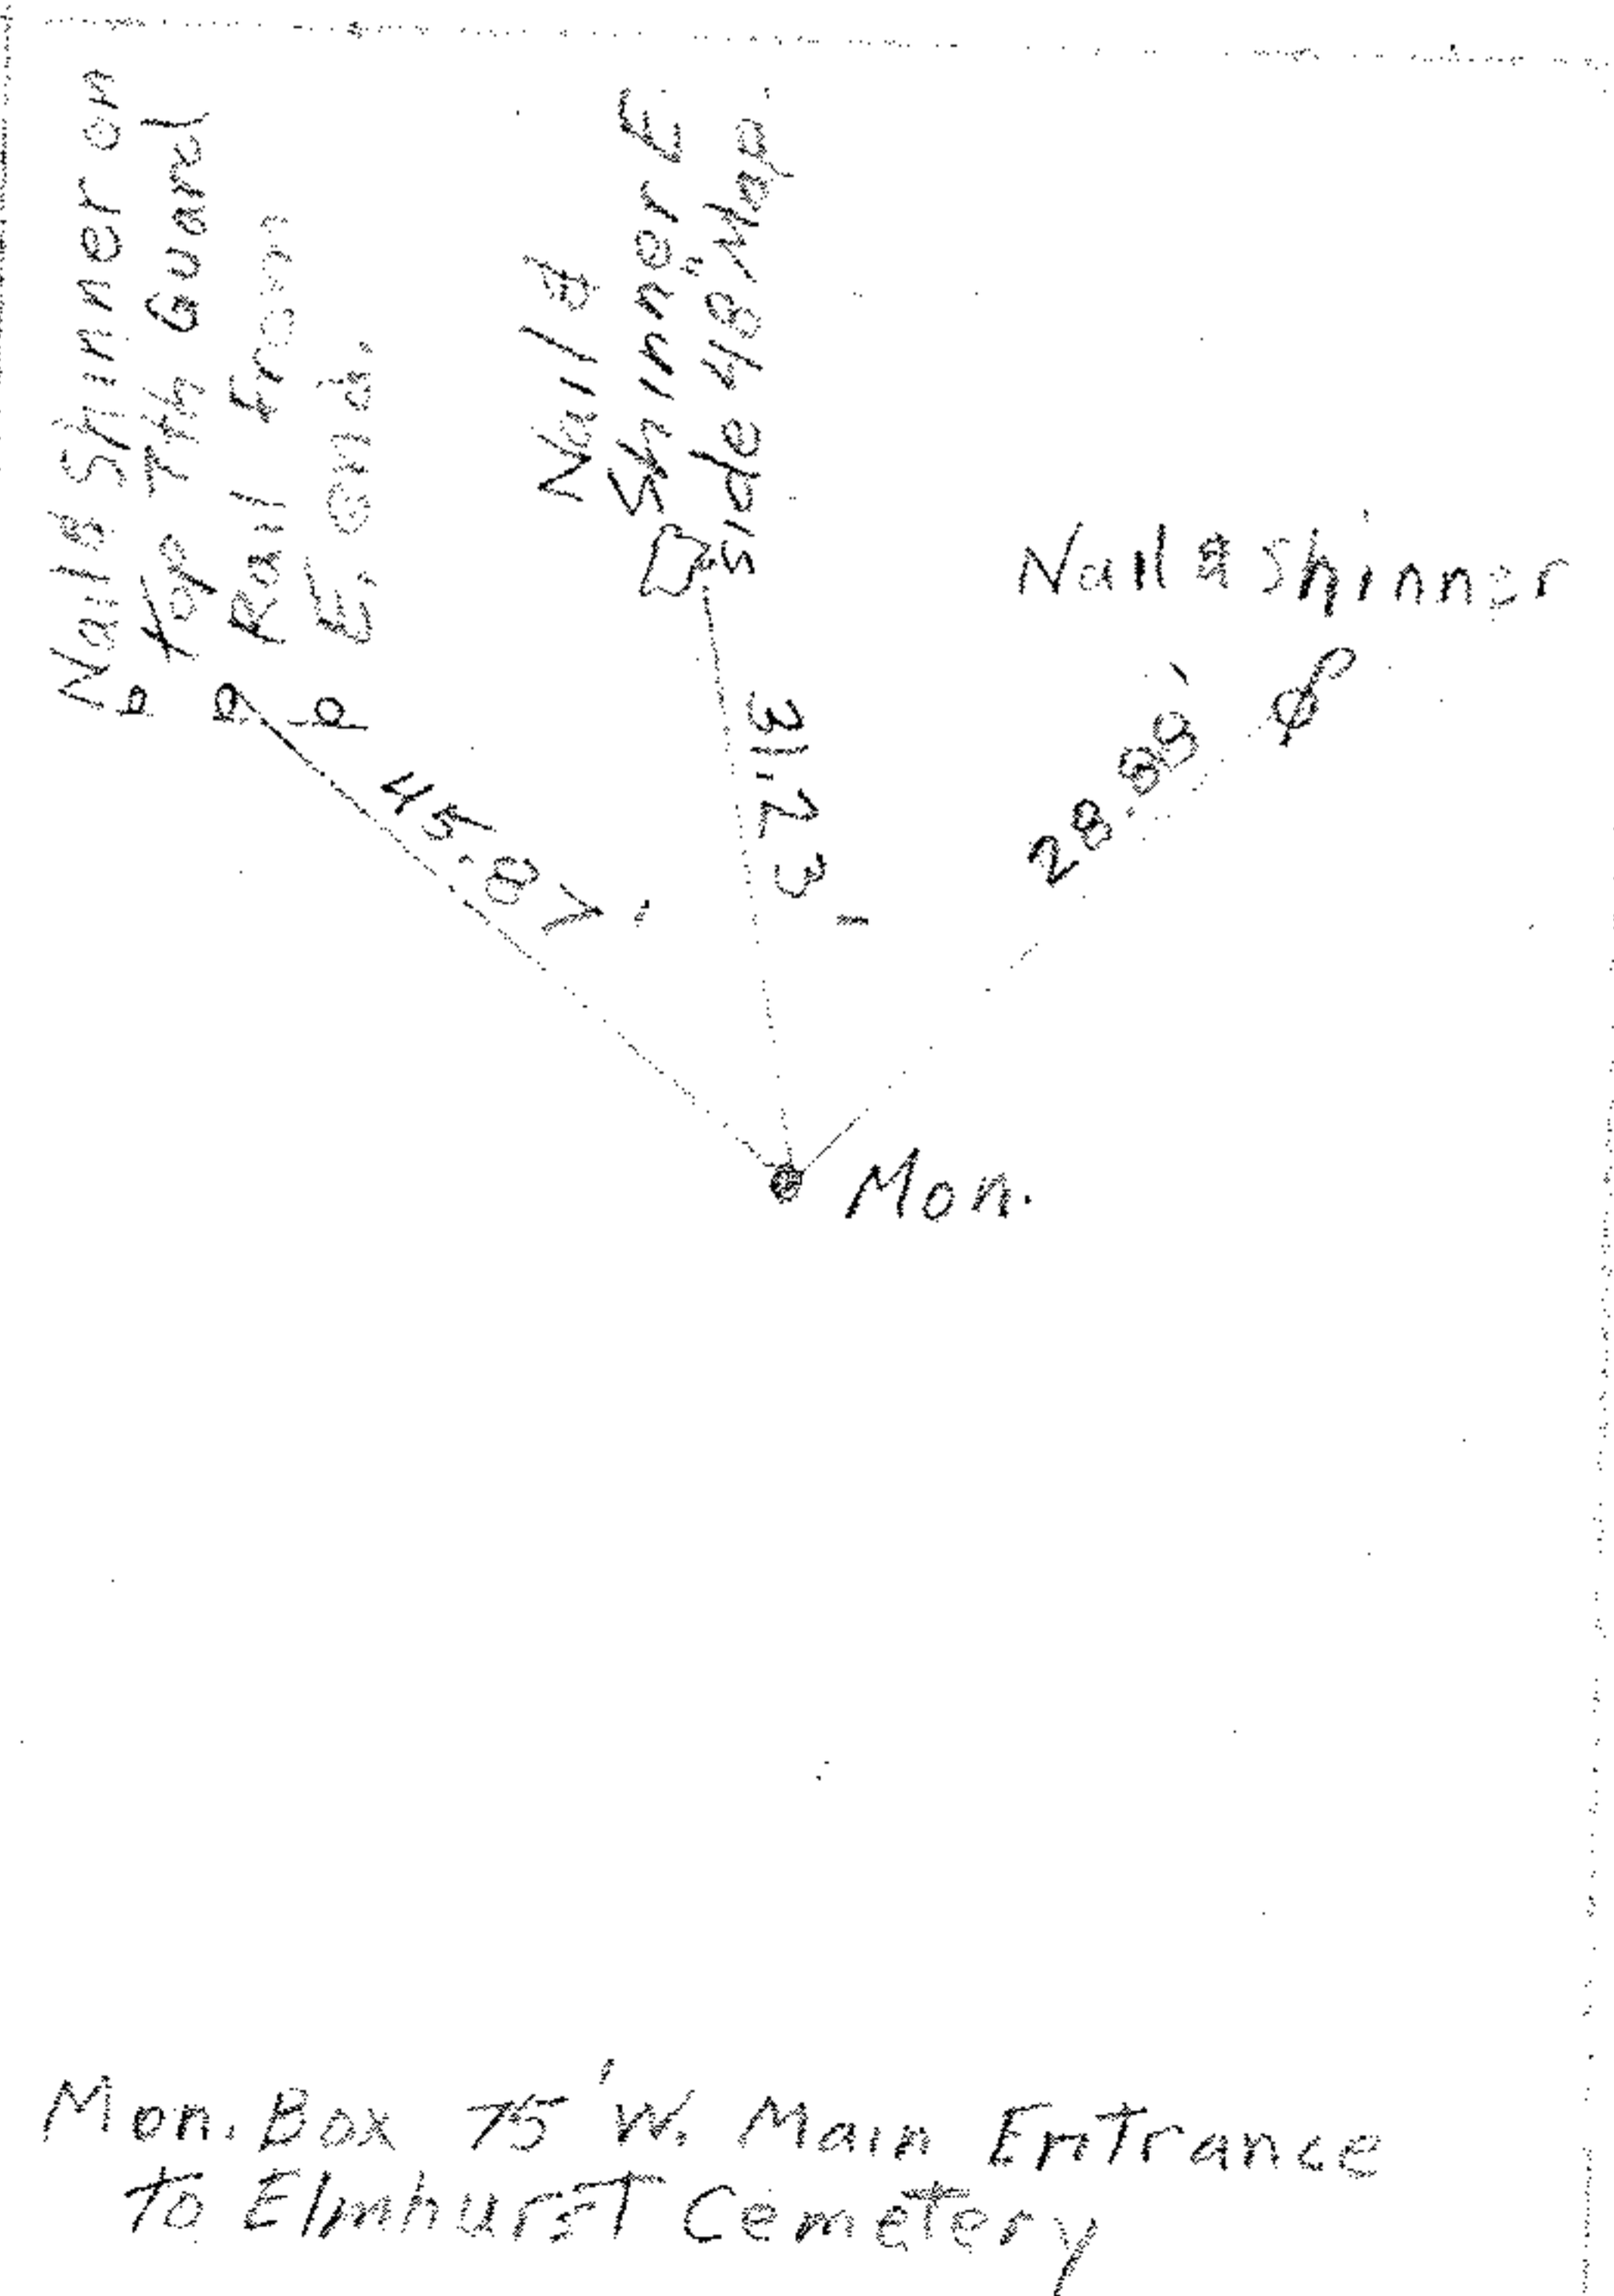 Nail & Shinner on
Top 7th Guard
Rail From
E. End.
Nail &
Shinner E
Side 48" Map
Nail & Shinner
45.87'
31.23'
Mon.
Mon. Box 75' W. Main Entrance
To Elmhurst Cemetery